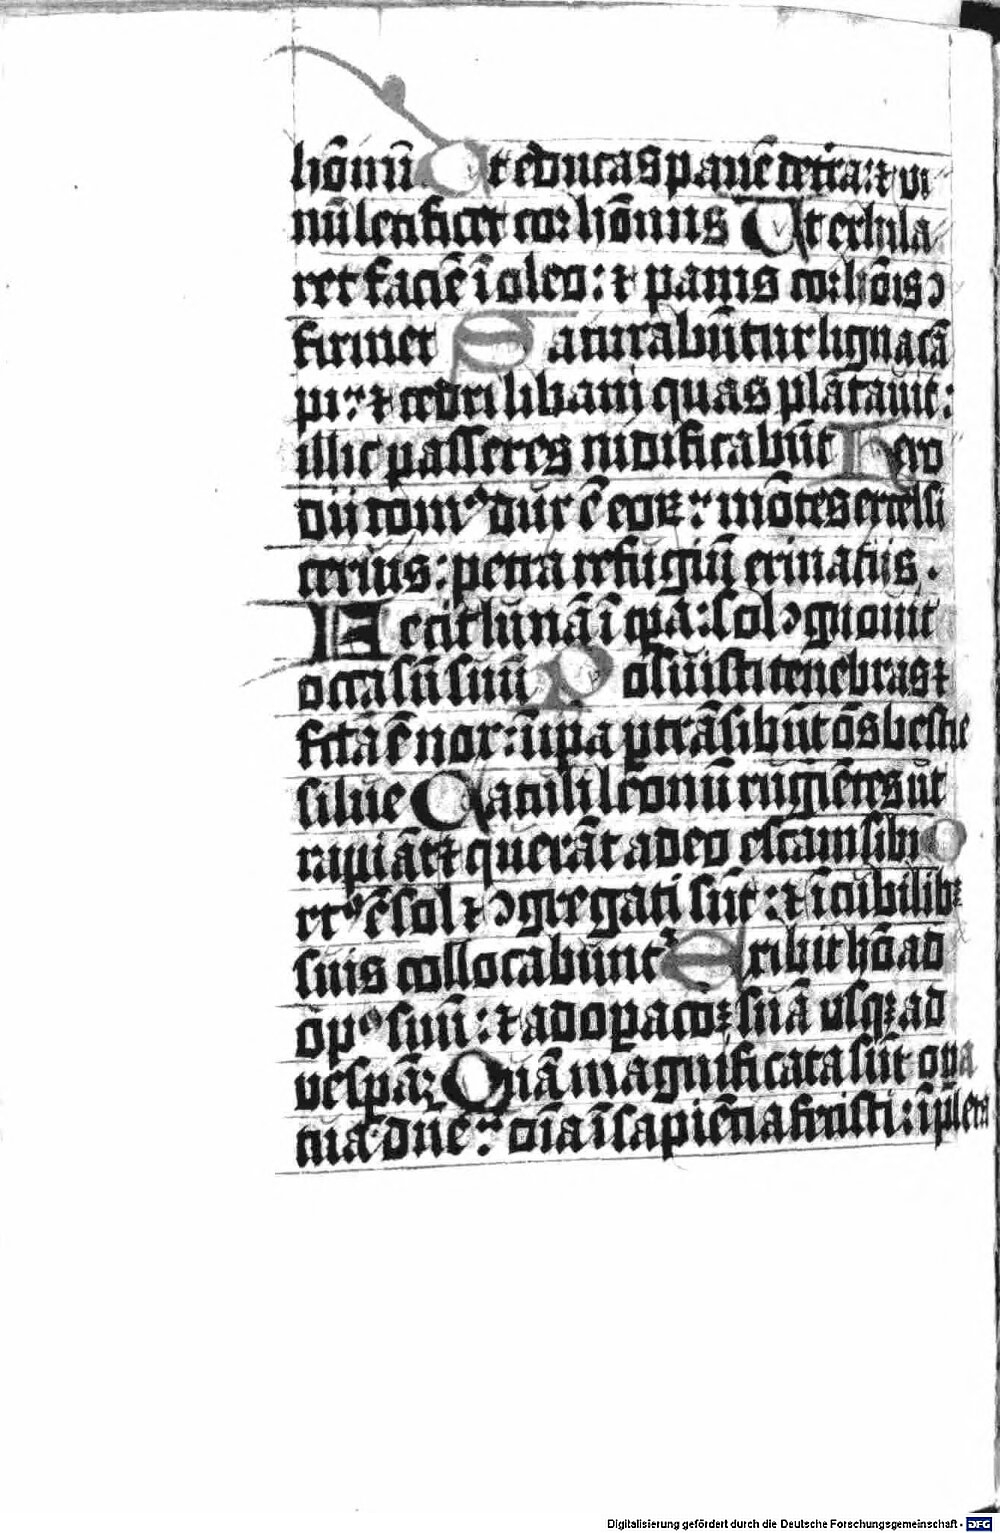 hōinū Ut educas panē de t̄ra: ⁊ vi
nū letificet cor hōinis Ut exhila
ret faciē ī oleo: ⁊ panis cor hōis ↄ
firmet Saturabūtur ligna cā
pi: ⁊ cedri libani quas plātauit:
illic passeres nidificabūt Hero
dii domꝰ dux ē eoꝝ: mōtes excelsi
ceruis: petra refugiū erinatiis.
Fecit lunā ī tp̄a: sol ↄgnouit
occasū suū Posuisti tenebras ⁊
fc̄ta ē nox: ī ip̄a ꝑtrāsibūt ōs bestie
silue Catuli leonū rugiētes ut
rapiāt ⁊ querāt a deo escam sibi O
rtꝰ ē sol ⁊ ↄgregati sūt: ⁊ ī cubilibꝫ
suis collocabunt᷑ Exibit hō ad
opꝰ suū: ⁊ ad oꝑacōꝫ suā usqꝫ ad
vesꝑāꝫ Quā magnificata sūt oꝑa
tua dn̄e: oīa ī sapiētia fecisti: īpleta